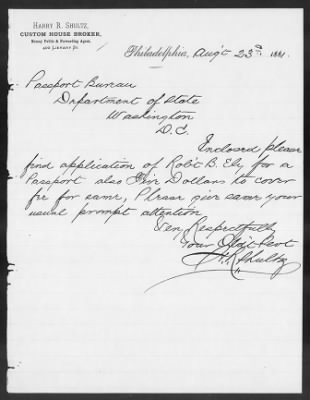 HARRY R. SHULTZ,
CUSTOM HOUSE BROKER,
Notary Public & Forwarding Agent,
400 LIBRARY ST.
Philadelphia, Aug't 23rd 1881.
Passport Bureau
Department of State
Washington
D.C.
Enclosed please
find application of Rob't B. Ely for a
Passport also Five Dollars to cover
fee for same, Please give same your
usual prompt attention
Very Respectfully
Your Obd't Servt
H.R. Shultz